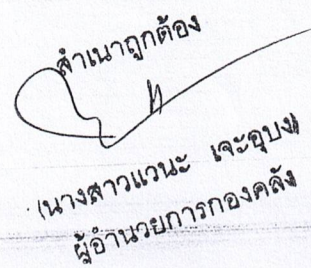 สำเนาถูกต้อง
(นางสาวแวนะ เจะอุบง)
ผู้อำนวยการกองคลัง